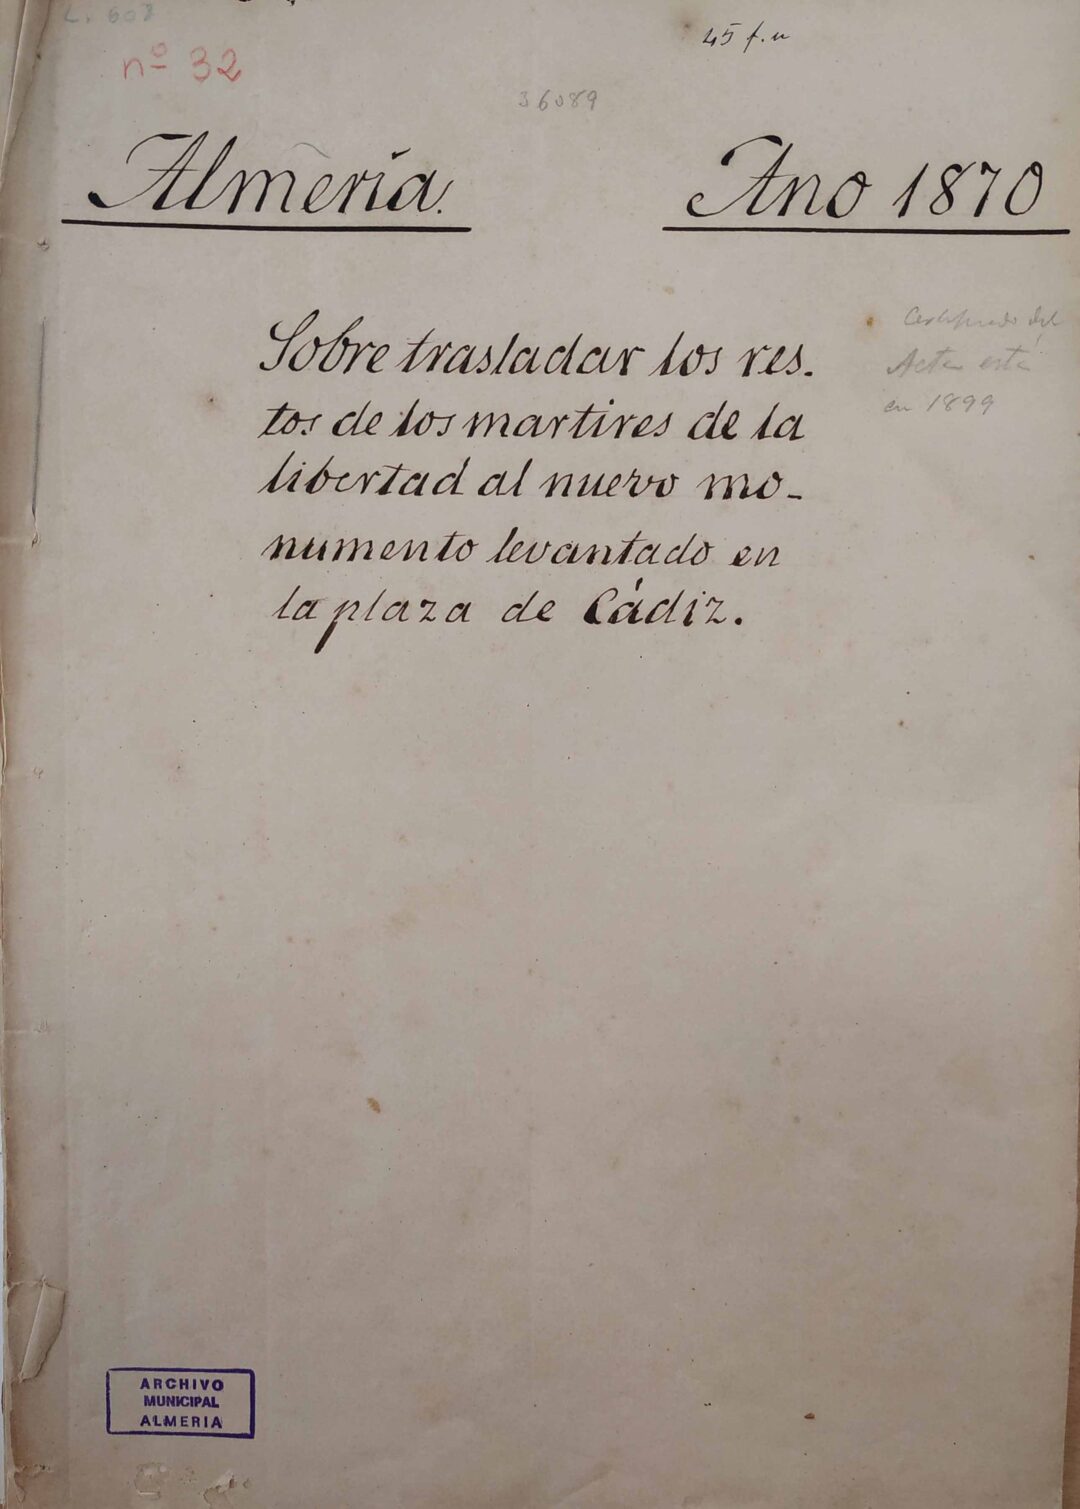 L. 608
nº 32
45 f. u
36089
Almería.
Ano 1870
Sobre trasladar los res.
tos de los martires de la
libertad al nuevo mo-
numento levantado en
la plaza de Cádiz.
Certificado del
Acta está
en 1899
ARCHIVO
MUNICIPAL
ALMERIA